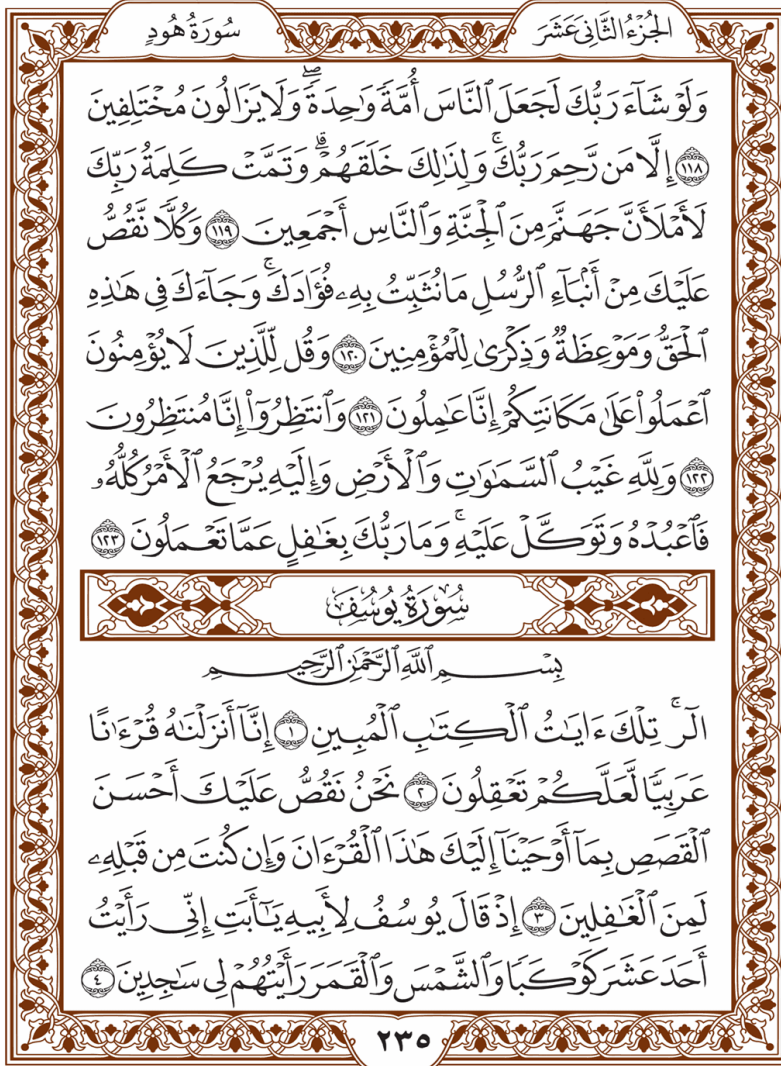 الجُزْءُ الثَّانِي عَشَرَ
سُورَةُ هُودٍ
وَلَوْ شَآءَ رَبُّكَ لَجَعَلَ ٱلنَّاسَ أُمَّةً وَٰحِدَةًۖ وَلَا يَزَالُونَ مُخْتَلِفِينَ
١١٨ إِلَّا مَن رَّحِمَ رَبُّكَۚ وَلِذَٰلِكَ خَلَقَهُمْۗ وَتَمَّتْ كَلِمَةُ رَبِّكَ
لَأَمْلَأَنَّ جَهَنَّمَ مِنَ ٱلْجِنَّةِ وَٱلنَّاسِ أَجْمَعِينَ ١١٩ وَكُلًّا نَّقُصُّ
عَلَيْكَ مِنْ أَنۢبَآءِ ٱلرُّسُلِ مَا نُثَبِّتُ بِهِۦ فُؤَادَكَۚ وَجَآءَكَ فِي هَٰذِهِ
ٱلْحَقُّ وَمَوْعِظَةٌ وَذِكْرَىٰ لِلْمُؤْمِنِينَ ١٢٠ وَقُل لِّلَّذِينَ لَا يُؤْمِنُونَ
ٱعْمَلُوا۟ عَلَىٰ مَكَانَتِكُمْ إِنَّا عَٰمِلُونَ ١٢١ وَٱنتَظِرُوٓا۟ إِنَّا مُنتَظِرُونَ
١٢٢ وَلِلَّهِ غَيْبُ ٱلسَّمَٰوَٰتِ وَٱلْأَرْضِ وَإِلَيْهِ يُرْجَعُ ٱلْأَمْرُ كُلُّهُۥ
فَٱعْبُدْهُ وَتَوَكَّلْ عَلَيْهِۚ وَمَا رَبُّكَ بِغَٰفِلٍ عَمَّا تَعْمَلُونَ ١٢٣
سُورَةُ يُوسُفَ
بِسْمِ ٱللَّهِ ٱلرَّحْمَٰنِ ٱلرَّحِيمِ
الٓرۚ تِلْكَ ءَايَٰتُ ٱلْكِتَٰبِ ٱلْمُبِينِ ١ إِنَّآ أَنزَلْنَٰهُ قُرْءَٰنًا
عَرَبِيًّا لَّعَلَّكُمْ تَعْقِلُونَ ٢ نَحْنُ نَقُصُّ عَلَيْكَ أَحْسَنَ
ٱلْقَصَصِ بِمَآ أَوْحَيْنَآ إِلَيْكَ هَٰذَا ٱلْقُرْءَانَ وَإِن كُنتَ مِن قَبْلِهِۦ
لَمِنَ ٱلْغَٰفِلِينَ ٣ إِذْ قَالَ يُوسُفُ لِأَبِيهِ يَٰٓأَبَتِ إِنِّي رَأَيْتُ
أَحَدَ عَشَرَ كَوْكَبًا وَٱلشَّمْسَ وَٱلْقَمَرَ رَأَيْتُهُمْ لِي سَٰجِدِينَ ٤
٢٣٥